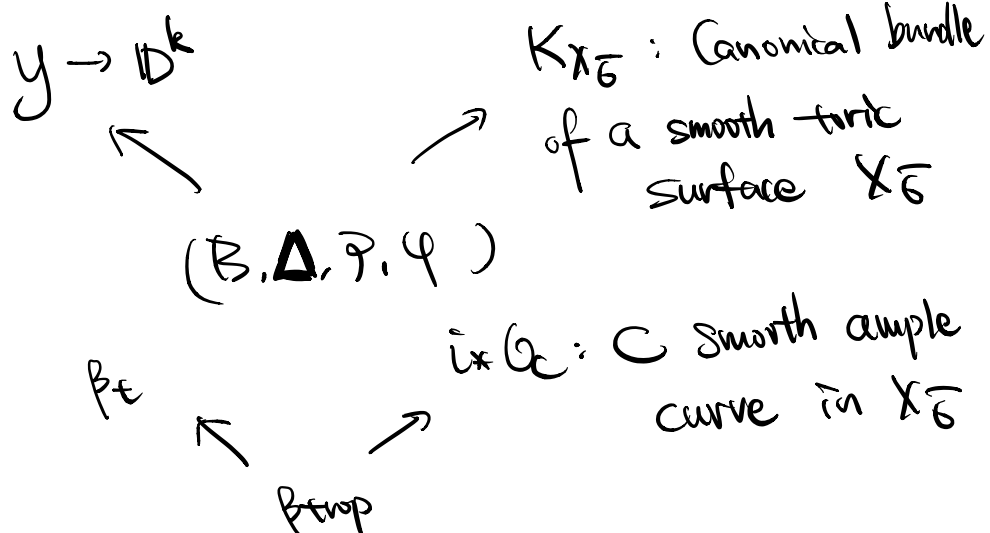 𝒴 → 𝔻ᵏ
K_{X_σ̄} : Canonical bundle
of a smooth toric
surface X_σ̄
(B, Δ, P, φ)
i_* O_C : C smooth ample
curve in X_σ̄
β_t
β_trop